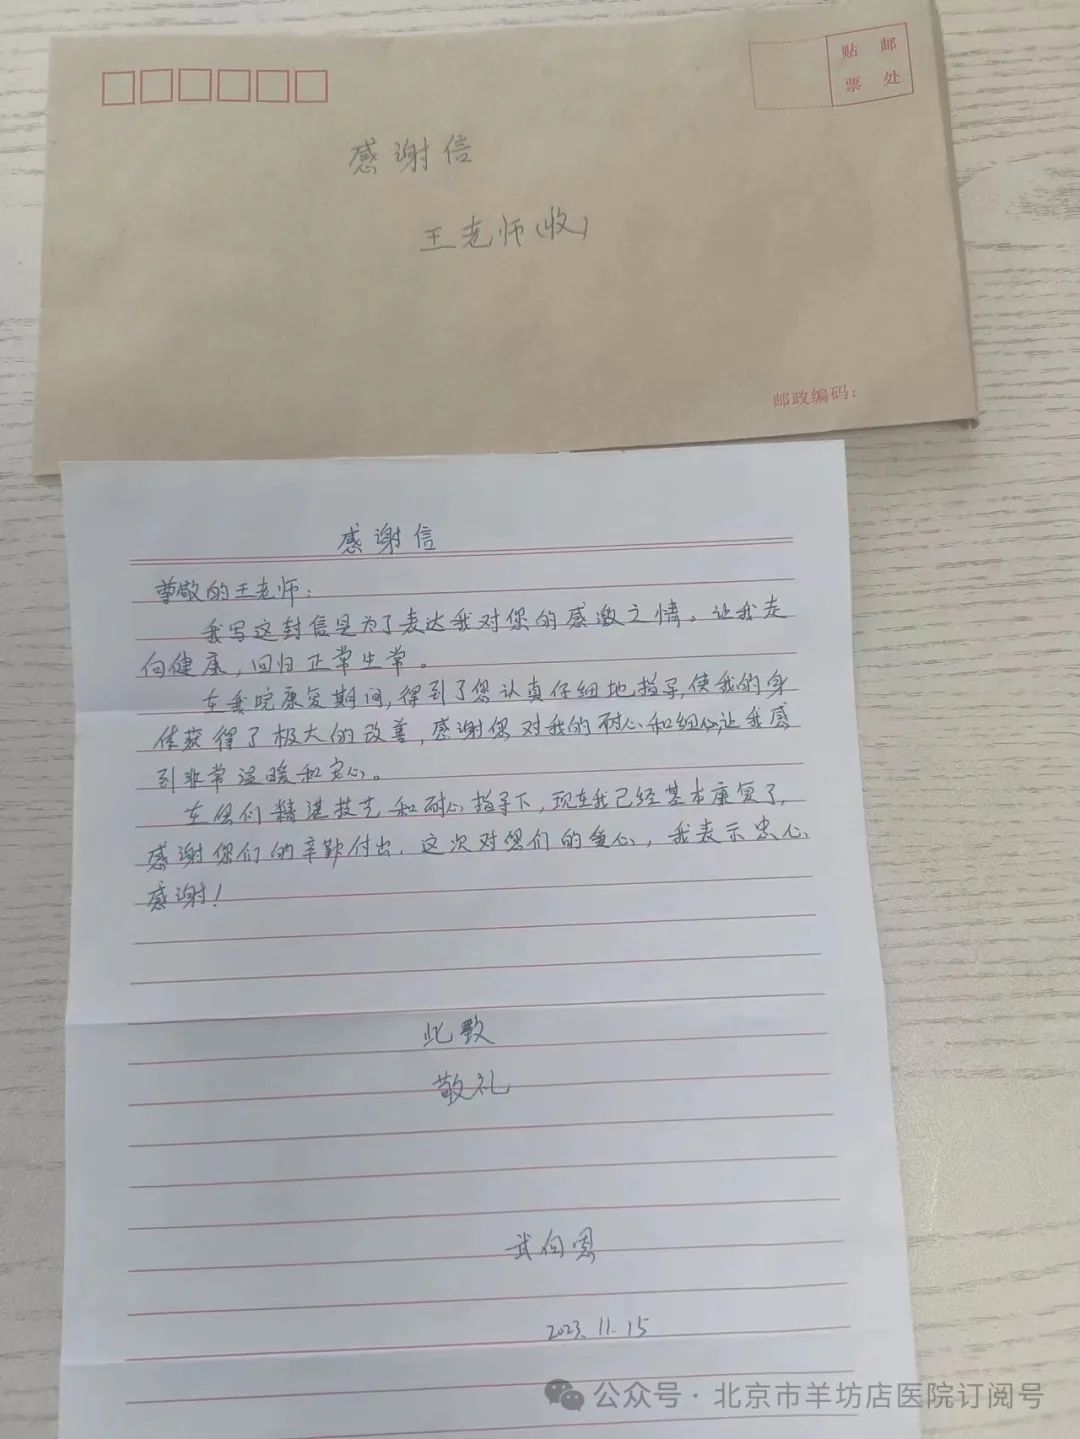 贴 邮
票 处
感谢信
王老师(收)
邮政编码:
感谢信
尊敬的王老师:
我写这封信是为了表达我对您的感激之情。让我走
向健康,回归正常生常。
在我院康复期间,得到了您认真仔细地指导,使我的身
体获得了极大的改善,感谢您对我的耐心和细心,让我感
到非常温暖和安心。
在你们精湛技艺和耐心指导下,现在我已经基本康复了,
感谢您们的辛勤付出,这次对您们的爱心,我表示忠心
感谢!
此致
敬礼
武向恩
2023.11.15
公众号·北京市羊坊店医院订阅号